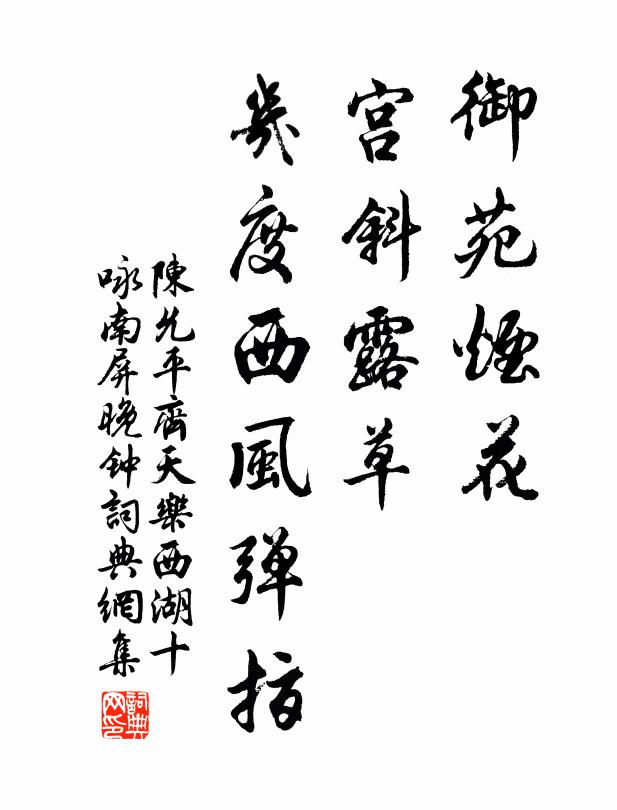 御苑煙花
宫斜露草
幾度西風弹指
陳允平齊天樂西湖十
咏南屏晚钟詞典網集
詞典网印